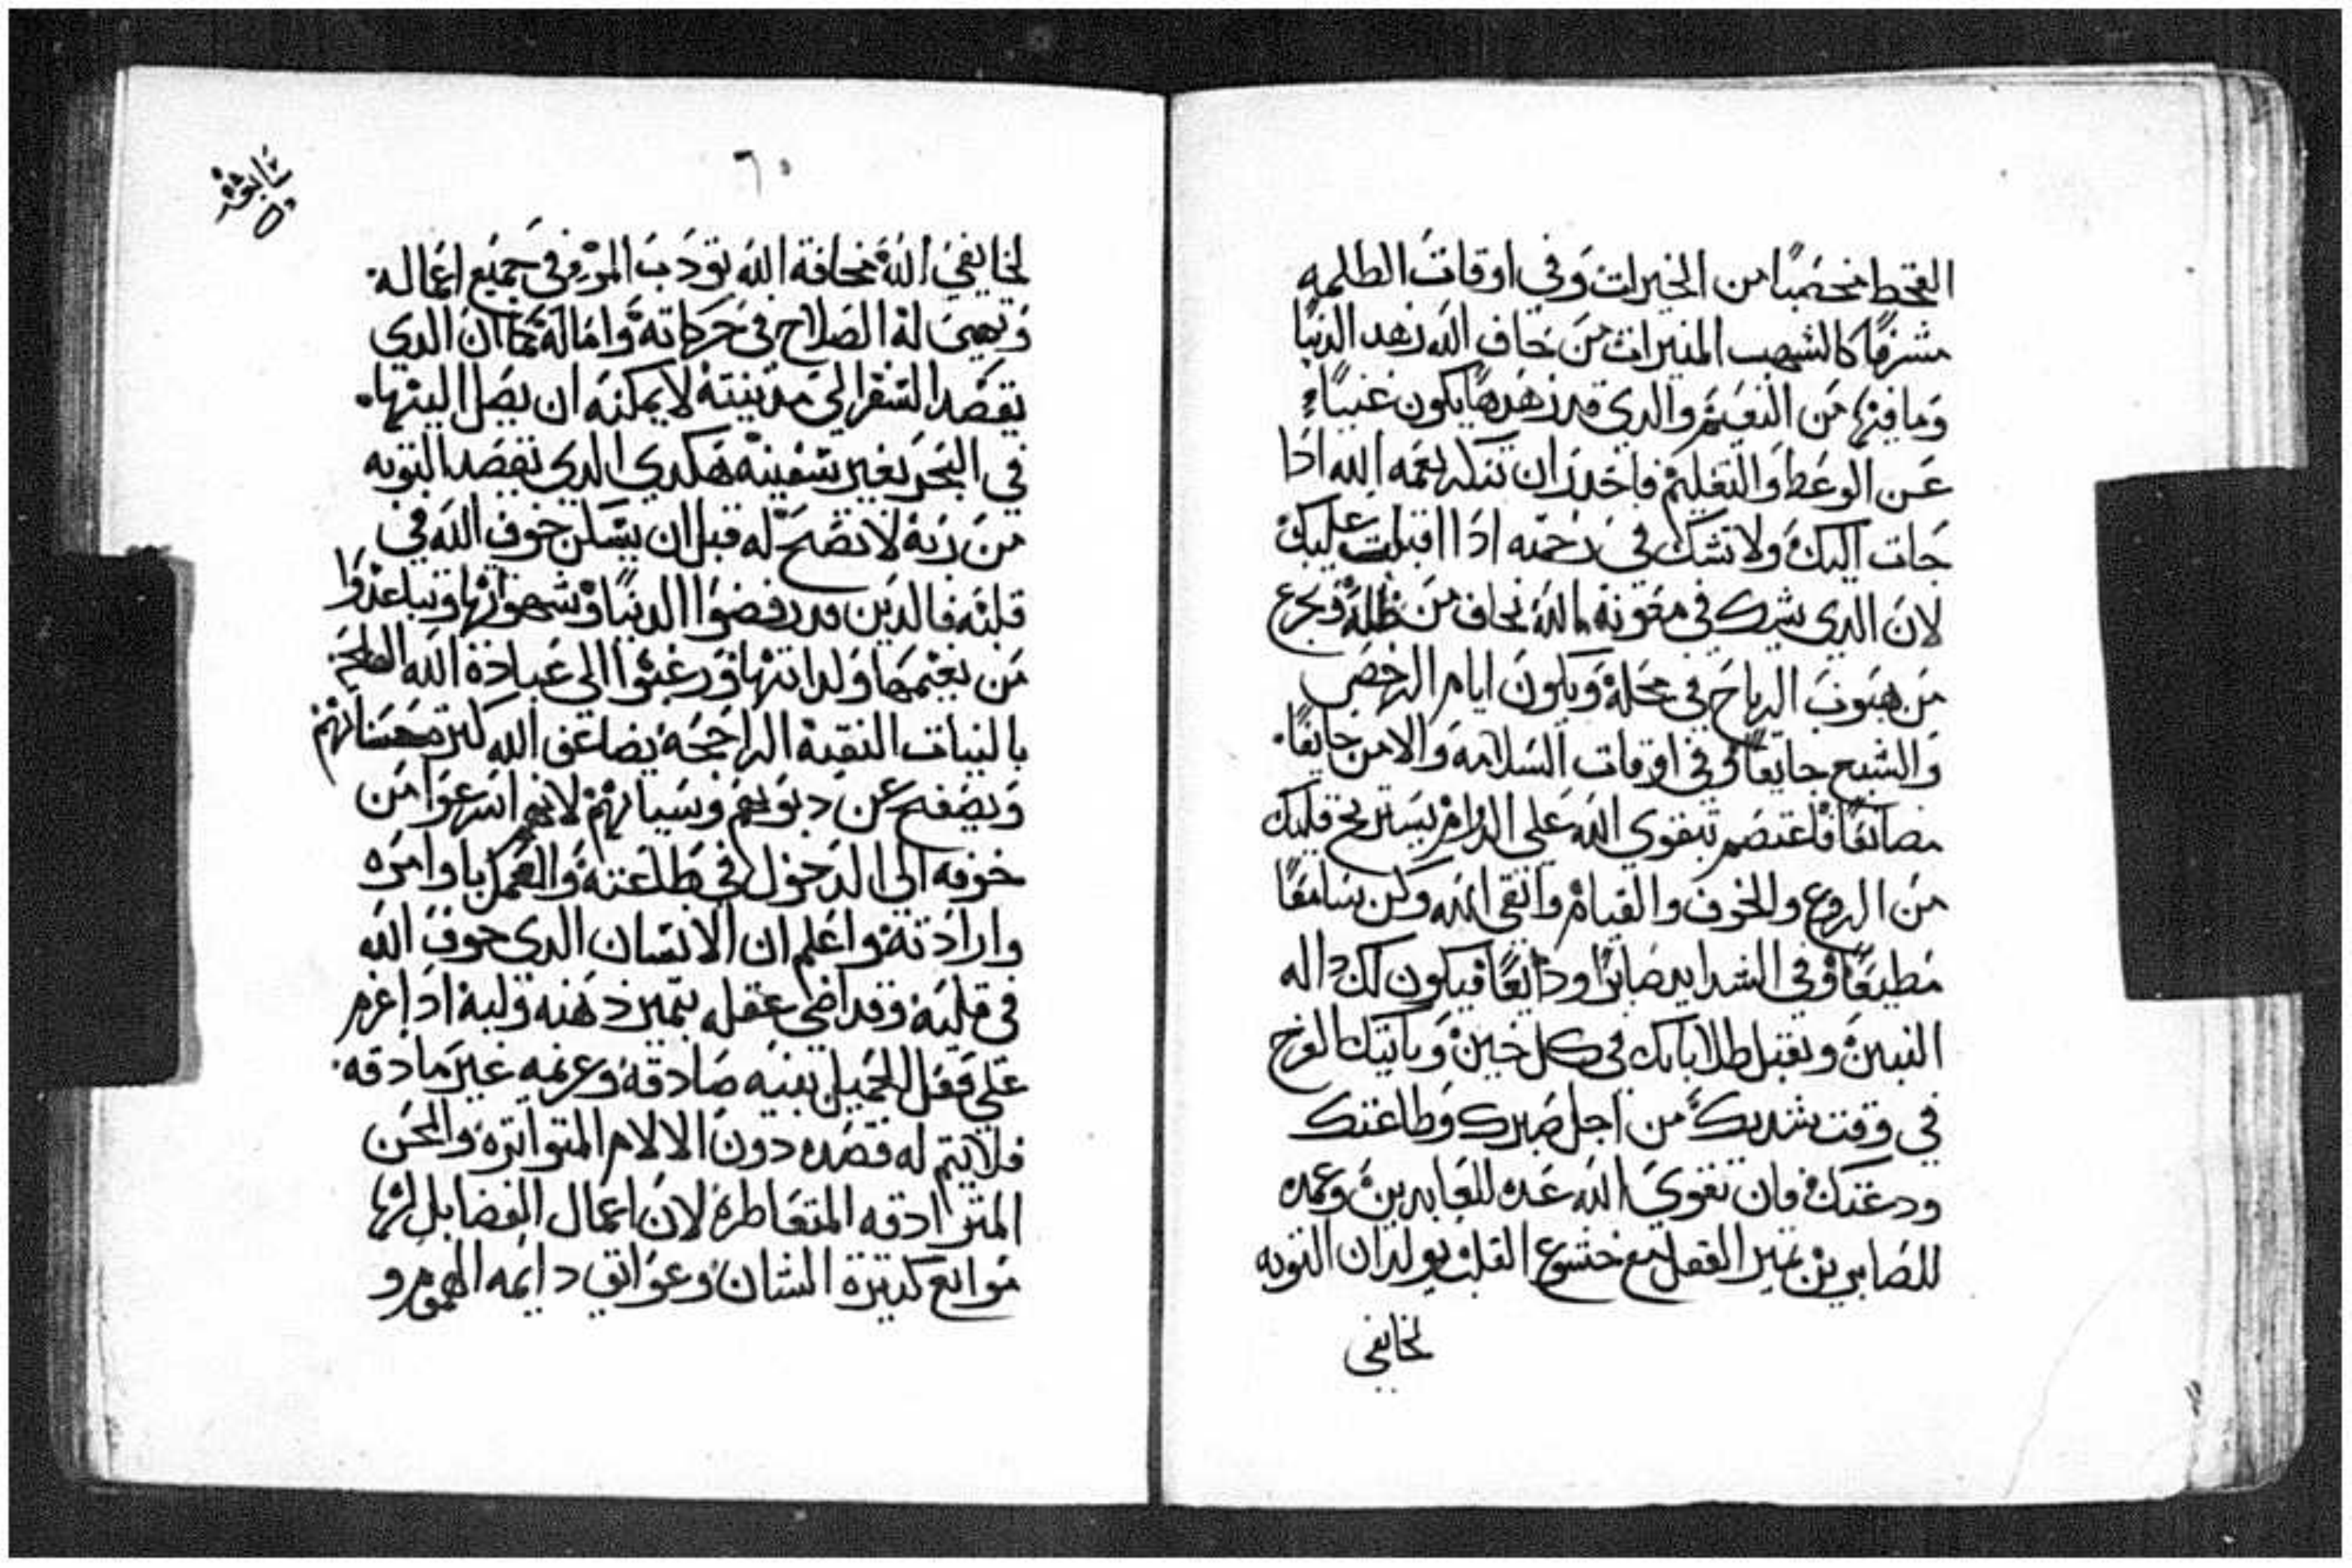 القحط مخصبًا من الخيرات وفي اوقات الظلمه
مشرقًا كالشهب المنيرات من خاف الله زهد الدنيا
وما فيها من النعيم والدي قد زهدها يكون غنيًا
عن الوعظ والتعليم فاحدر ان تنكر نعمه الله ادا
جات اليك ولا تشك في رحمته ادا اقبلت عليك
لان الدي يشك في معونة الله يخاف من ظله ويجزع
من هبوب الرياح في محله ويكون ايام الرخص
والشبع جايعًا وفي اوقات السلامه والامن خايفًا
فاعتصم بتقوي الله علي الدوام يستريح قلبك
من الروع والخوف والقيام واتقي الله وكن سامعًا
مطيعًا وفي الشدايد صابرًا ودايعًا فيكون لك داله
البنين ويقبل طلاباتك في كل حين وياتيك الفرج
في وقت شدتك من اجل صبرك وطاعتك
ودعتك فان تقوي الله عده للعابدين وعمده
للصابرين تميز العقل مع خشوع القلب يولدان التوبه
لخايفي
٦٠
لخايفي الله مخافة الله تودب المرو في جميع اعماله
وتهيئ له الصلاح في حركاته واماله كما ان الدي
يقصد السفر الي مدينته لا يمكنه ان يصل اليها
في البحر بغير سفينه هكدي الدي يقصد التوبه
من زنه لا تصح له قبل ان يسكن خوف الله في
قلبه فالدين قد رفضوا الدنيا وشهواتها وتباعدوا
من نعيمها ولداتها ورغبوا الي عبادة الله
بالنيات النقية الراجحة يضاعف الله كثرة حسناتهم
ويصفح عن دنوبهم وسياتهم لانهم اسرعوا من
خوفه الي الدخول في طاعته والعمل باوامره
وارادته واعلم ان الانسان الدي خوف الله
في قلبه وقد اضي عقله بتميز دهنه ولبه ادا عزم
علي فعل الجميل بنيه صادقه وعزيمه غير مادقه
فلا يتم له قصده دون الالام المتواتره والمحن
المترادفه المتقاطرة لان اعمال الفضايل لها
موانع كثيرة الشان وعوايق دايمه الهموم و